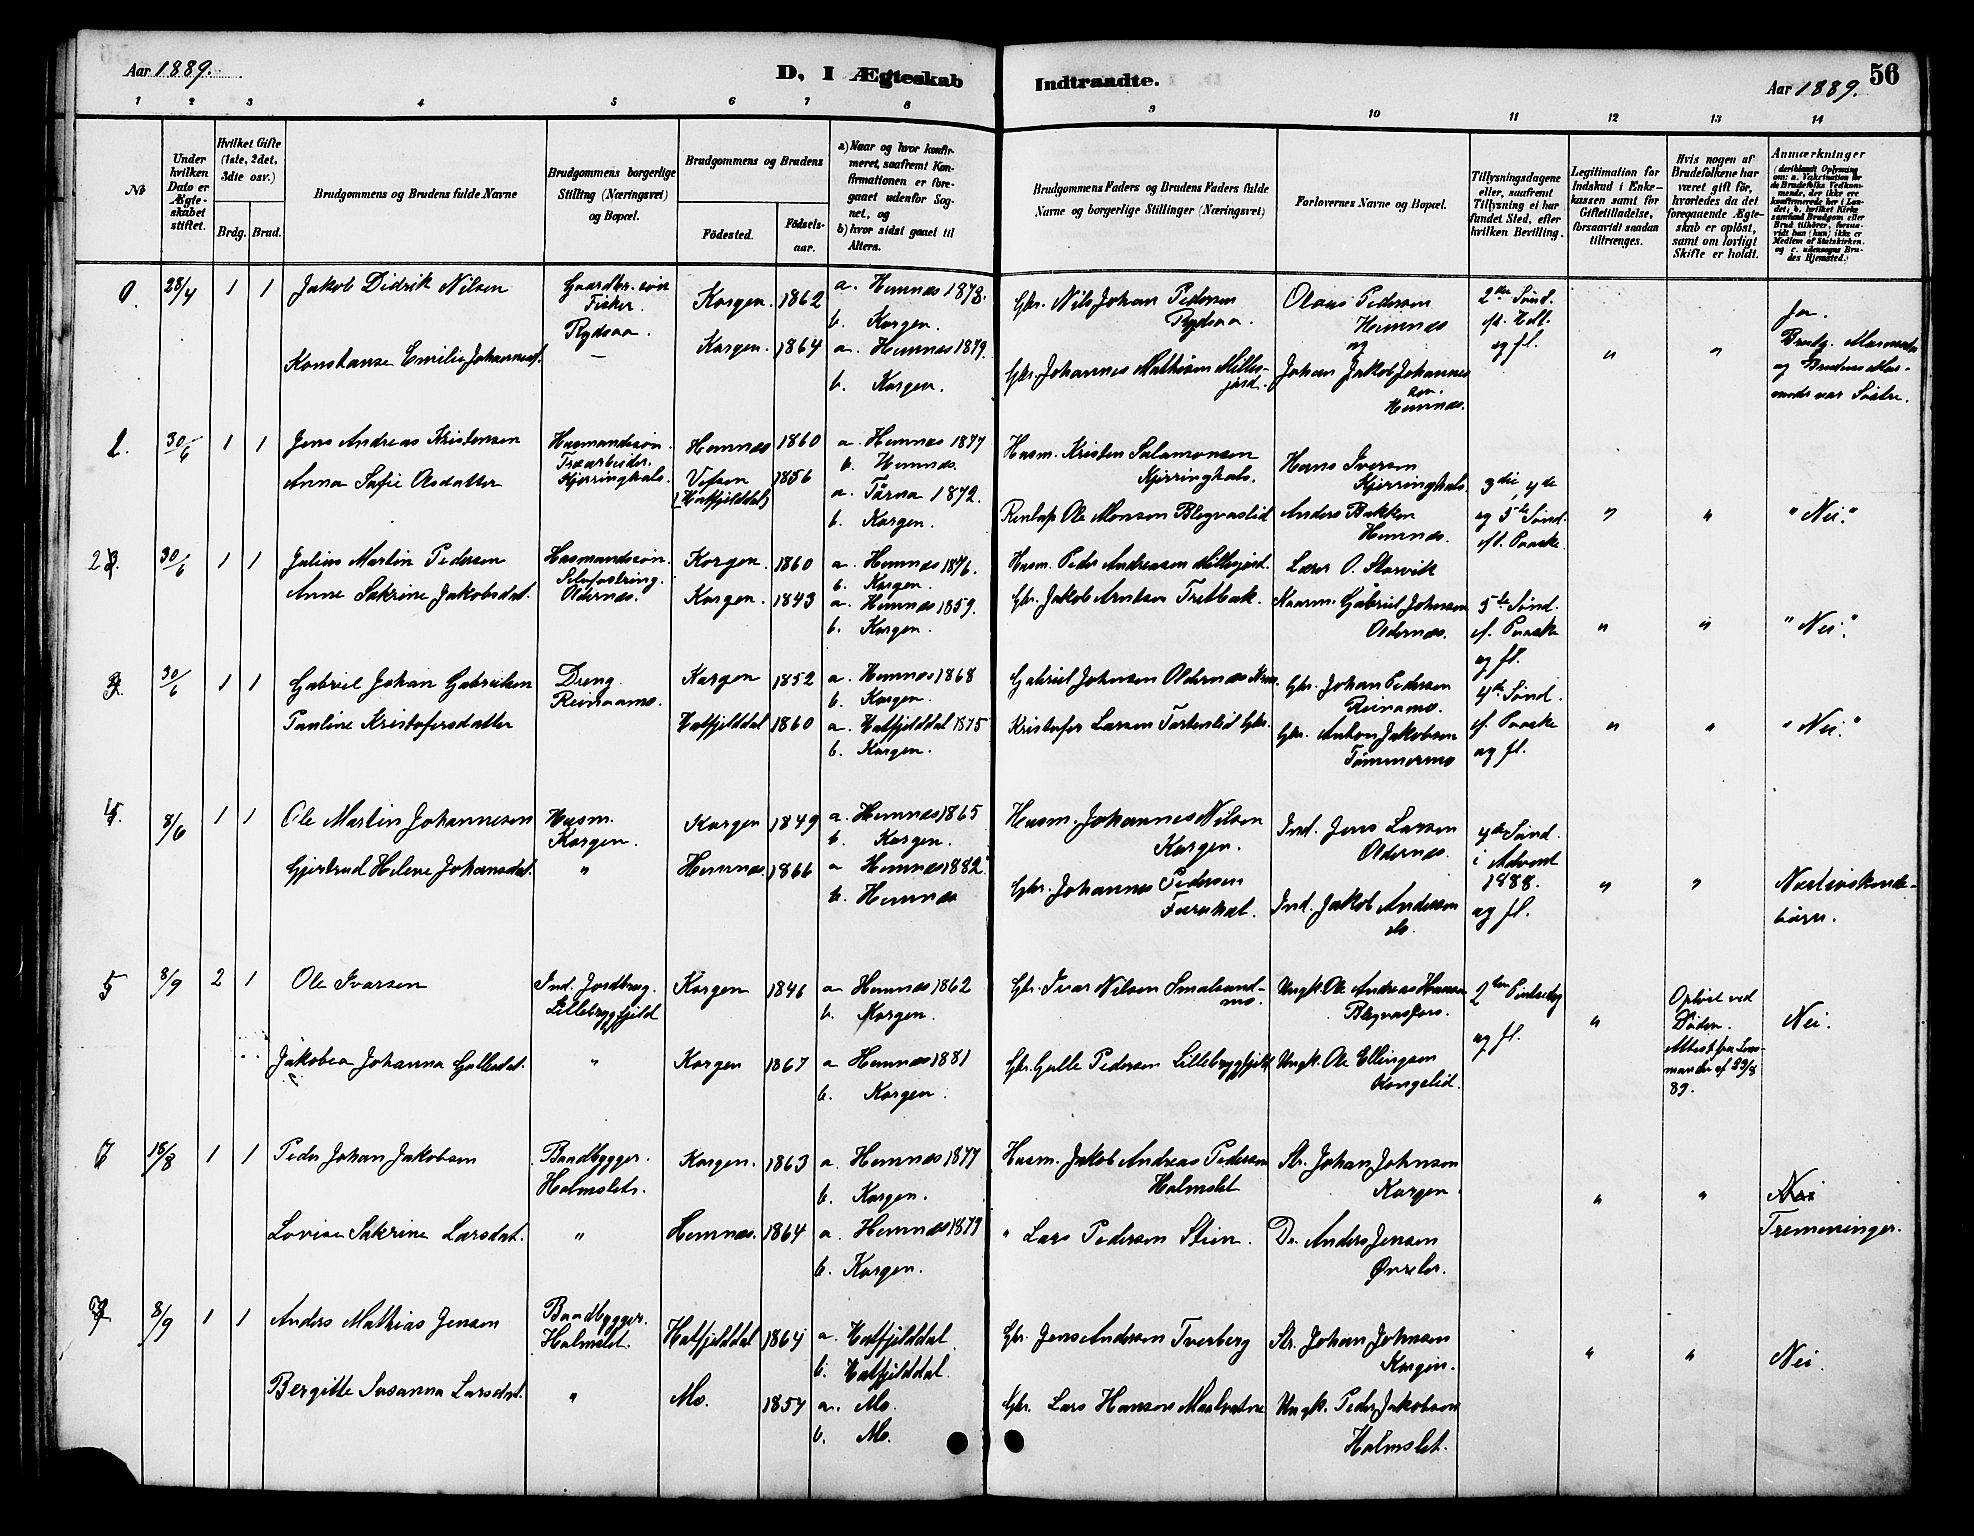 Aar 1889.
D, I Ægteskab
Indtraadte.
Aar 1889.
56
1 2 3 4 5 6 7 8 9 10 11 12 13 14
No
Under hvilken Dato er Ægteskabet stiftet.
Hvilket Gifte (1ste, 2det, 3die osv.)
Brdg. Brud.
Brudgommens og Brudens fulde Navne
Brudgommens borgerlige Stilling (Næringsvei) og Bopæl.
Brudgommens og Brudens
Fødested.
Fødselsaar.
a) Naar og hvor konfirmeret, saafremt Konfirmationen er foregaaet udenfor Sognet, og
b) hvor sidst gaaet til Alters.
Brudgommens Faders og Brudens Faders fulde Navne og borgerlige Stillinger (Næringsvei)
Forlovernes Navne og Bopæl.
Tillysningsdagene eller, saafremt Tillysning ei har fundet Sted, efter hvilken Bevilling.
Legitimation for Indskud i Enkekassen samt for Giftetilladelse, forsaavidt saadan tiltrænges.
Hvis nogen af Brudefolkene har været gift før, hvorledes da det foregaaende Ægteskab er opløst, samt om lovligt Skifte er holdt.
Anmærkninger
28/4 1 1 Jakob Didrik Nilsen
Gaardbr. søn
Fisker
Rydsaa.
Korgen. 1862 a. Hemnes 1878.
b. Korgen.
Gbr. Nils Johan Pedersen
Rydsaa.
Olaus Pedersen
Hemnes
og
2den Sønd.
og fl.
Ja.
Konstanse Emilie Johannesd.
Korgen. 1864 a. Hemnes 1879.
b. Korgen.
Gbr. Johannes Mathisen Millesjord.
Johan Jakob Johannessen.
Hemnes.
" "
1. 30/6 1 1 Jens Andreas Kristensen
Husmandssøn.
Træarbeider.
Kjerringhals.
Hemnes 1860 a. Hemnes 1877
b. Hemnes.
Husm. Kristen Salamonsen
Kjerringhals.
Hans Iversen
Kjerringhals.
3die, 4de
Anna Sofie Olsdatter
Vefsen
(Hatfjelddal)
1856
a. Tärna 1872.
b. Korgen.
Ole Monsen Blegvaslid
Anders Bakken
Hemnes.
og 5te Sønd.
ef. Paaske
" " "Nei."
2 30/6 1 1 Julius Martin Pedersen
Husmandssøn
Selvfostring.
Oldernes.
Korgen. 1860 a. Hemnes 1876.
b. Korgen.
Husm. Peder Andreasen Millesjord.
Lærer O. Storvik
Anne Sakrine Jakobsdat.
Korgen. 1843 a. Hemnes 1859.
b. Korgen.
Gbr. Jakob Arntsen Tretbak.
Gabriel Johnsen
Oldernes.
5te Sønd.
ef. Paaske
og fl.
" " "Nei."
3 30/6 1 1 Gabriel Johan Gabrielsen
Dreng.
Reinaamo.
Korgen 1852 a. Hemnes 1868
b. Korgen.
Gabriel Johnsen Oldernes
Gbr. Johan Pedersen
Reinamo.
4de Sønd.
Pauline Kristofersdatter
Hatfjelddal 1860 a. Hatfjelddal 1875
b. Korgen.
Kristofer Larsen Tortenlid Gbr.
Gbr. Anton Jakobsen
Tømmermo
ef. Paaske
og fl.
" " "Nei."
4. 8/6 1 1 Ole Martin Johannesen
Husm.
Korgen.
Korgen 1849 a. Hemnes 1865
b. Korgen.
Husm. Johannes Nilsen
Korgen.
Ind. Jens Larsen
Oldernes.
4de Sønd.
i Advent
1888.
og fl.
Gjertrud Helene Johansdat.
"
Hemnes. 1866 a. Hemnes 1882.
b. Hemnes
Gbr. Johannes Pedersen
Ind. Jakob Andersen
do.
" " Næstsøskendebørn.
5 8/9 2 1 Ole Ivarsen
Ind. Jordbrug.
Lillebyggfjeld
Korgen 1846 a. Hemnes 1862
b. Korgen.
Gbr. Ivar Nilsen Smalsundmo.
Ungk. Ole Andreas Hansen
Blegvasfors.
2den Pintsedag
og fl.
"
Opløst ved
Døden.
Attest fra Lensmanden af 29/8
89.
Nei.
Jakobea Johanna Gulledat.
"
Korgen 1867 a. Hemnes 1881
b. Korgen.
Gbr. Gulle Pedersen Lillebyggfjeld
Ungk. Ole Ellingsen
Kongslid.
6 18/8 1 1 Peder Johan Jakobsen
Baadbygger.
Holmslet.
Korgen. 1863 a. Hemnes 1877
b. Korgen.
Husm. Jakob Andreas Pedersen
Holmslet
Str. Johan Johnsen
Korgen.
" " Nei
Lovise Sakrine Larsdat.
"
Hemnes. 1864 a. Hemnes 1879
b. Korgen.
" Lars Pedersen Stien.
Dr. Anders Jensen
Tremeninger.
7 8/9 1 1 Anders Mathias Jensen
Baadbygger.
Holmslet.
Hatfjelddal 1864 a. Hatfjelddal.
b. Hatfjelddal.
Gbr. Jens Andersen Tverberg
Str. Johan Johnsen
Korgen.
" " Nei.
Bergitte Susanna Larsdat.
"
Mo. 1854 a. Mo.
b. Mo.
Gbr. Lars Hansen
Ungk. Peder Jakobsen
Holmslet.